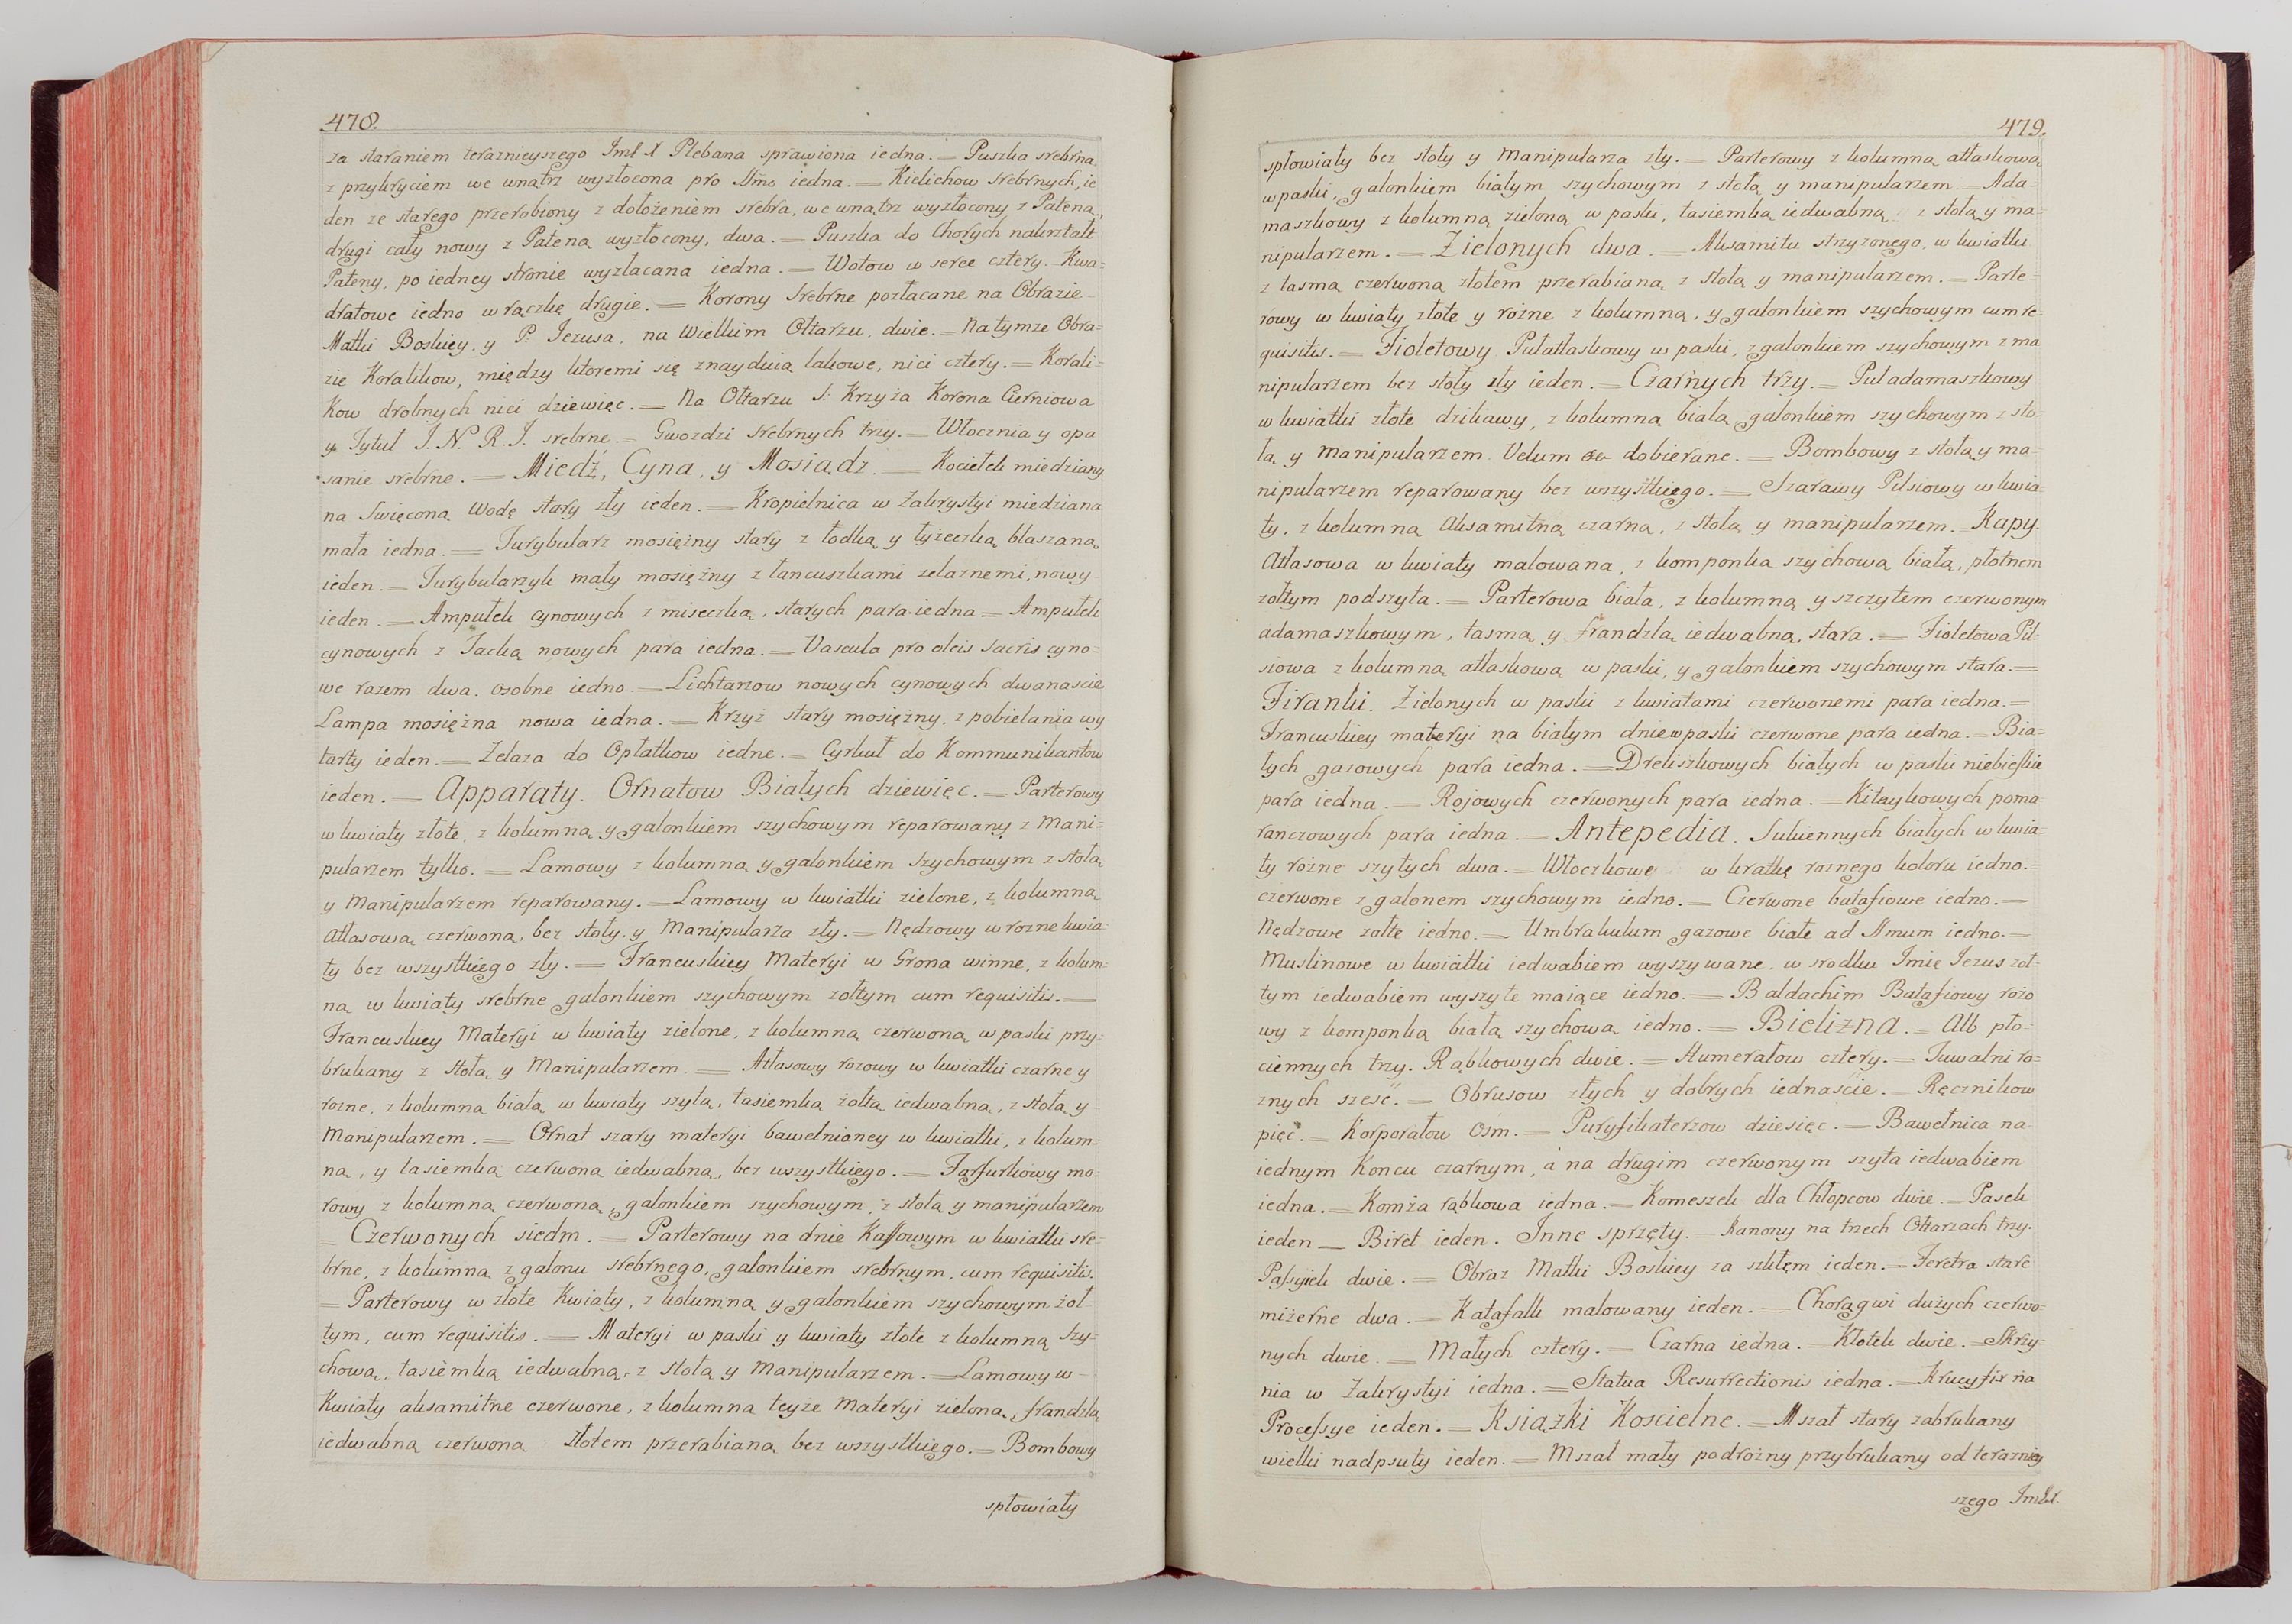 478.
za staraniem teraznieyszego Jmć X Plebana sprawiona iedna. = Puszka srebrna
z przykryciem we wnątrz wyzłocona pro SSmo iedna. = Kielichow srebrnych, ie
den ze starego przerobiony z dołożeniem srebra, we wnątrz wyzłocony z Pateną,
drugi cały nowy z Pateną wyzłocony, dwa. = Puszka do Chorych nakształt
Pateny, po iedney stronie wyzłacana iedna. = Wotow w serce cztery. Kwa=
dratowe iedno w rączkę drugie. = Korony Srebrne pozłacane na Obrazie
Matki Boskiey, y P. Jezusa, na Wielkim Ołtarzu, dwie. = Na tymże Obra=
zie Koralikow, między ktoremi się znayduią lakowe, nici cztery. = Korali=
kow drobnych nici dziewięc. = Na Ołtarzu S. Krzyża Korona Cierniowa
y Tytuł J. N. R. J. srebrne = Gwozdzi srebrnych trzy. = Włocznia y opa
sanie srebrne. = Miedź, Cyna, y Mosiądz. = Kociełek miedziany
na Swięconą Wodę stary zły ieden. = Kropielnica w Zakrystyi miedziana
mała iedna. = Turybularz mosiężny stary z łodką y łyżeczką blaszaną,
ieden. = Turybularzyk mały mosiężny z łancuszkami żelaznemi, nowy
ieden. = Ampułek cynowych z miseczką, starych para iedna = Ampułek
cynowych z Tacką nowych para iedna. = Vascula pro oleis sacris cyno=
we razem dwa. osobne iedno. = Lichtarzow nowych cynowych dwanascie
Lampa mosiężna nowa iedna. = Krzyż stary mosiężny, z pobielania wy
tarty ieden. = Żelaza do Opłatkow iedne. = Cyrkuł do Kommunikantow
ieden. = Apparaty. Ornatow Białych dziewięc. = Parterowy
w kwiaty złote, z kolumną y galonkiem szychowym reparowany z Mani=
pularzem tylko. = Lamowy z kolumną y galonkiem szychowym z stołą
y Manipularzem reparowany. = Lamowy w kwiatki zielone, z kolumną
Atłasową czerwoną, bez stoły y Manipularza zły. = Nędzowy w rozne kwia=
ty bez wszystkiego zły. = Francuskiey Materyi w Grona winne, z kolum=
ną w kwiaty srebrne galonkiem szychowym żołtym cum requisitis. =
Francuskiey Materyi w kwiaty zielone, z kolumną czerwoną w paski przy=
brukany z Stołą y Manipularzem. = Atłasowy rozowy w kwiatki czarne y
rozne, z kolumną białą w kwiaty szytą, tasiemką żołtą iedwabną, z stołą y
Manipularzem. = Ornat szary materyi bawełnianey w kwiatki, z kolum=
ną, y tasiemką czerwoną iedwabną, bez wszystkiego. = Farfurkowy mo=
rowy z kolumną czerwoną, galonkiem szychowym, z stołą y manipularzem
= Czerwonych siedm. = Parterowy na dnie Kassowym w kwiatki sre=
brne, z kolumną z galonu srebrnego, galonkiem srebrnym, cum requisitis.
= Parterowy w złote Kwiaty, z kolumną y galonkiem szychowym żoł=
tym, cum requisitis. = Materyi w paski y kwiaty złote z kolumną szy=
chową, tasiemką iedwabną, z stołą y Manipularzem. = Lamowy w
Kwiaty aksamitne czerwone, z kolumną teyże Materyi zieloną, frandzlą
iedwabną czerwoną złotem przerabianą bez wszystkiego. = Bombowy
spłowiały
479.
spłowiały bez stoły y Manipularza zły. = Parterowy z kolumną atłaskową
w paski, galonkiem białym szychowym z stołą y manipularzem. = Ada=
maszkowy z kolumną zieloną w paski, tasiemką iedwabną z stołą y ma=
nipularzem. = Zielonych dwa. = Aksamitu strzyzonego, w kwiatki
z tasmą czerwoną złotem przerabianą z stołą y manipularzem. = Parte=
rowy w kwiaty złote y rożne z kolumną, y galonkiem szychowym cum re=
quisitis. = Fioletowy Pułatłaskowy w paski, z galonkiem szychowym z ma
nipularzem bez stoły zły ieden. = Czarnych trzy. = Puładamaszkowy
w kwiatki złote dzikawy, z kolumną białą galonkiem szychowym z sto=
łą y Manipularzem. Velum do dobierane. = Bombowy z stołą y ma=
nipularzem reparowany bez wszystkiego. = Szarawy Pilsiowy w kwia=
ty, z kolumną Aksamitną czarną, z stołą y manipularzem. Kapy.
Atłasowa w kwiaty malowana, z komponką szychową białą, płotnem
zołtym podszyta. = Parterowa biała, z kolumną y szczytem czerwonym
adamaszkowym, tasmą y frandzlą iedwabną, stara. = Fioletowa Pil=
siowa z kolumną atłaskową w paski, y galonkiem szychowym stara. =
Firanki. Zielonych w paski z kwiatami czerwonemi para iedna. =
Francuskiey materyi na białym dnie w paski czerwone para iedna. = Bia=
łych gazowych para iedna. = Dreliszkowych białych w paski niebieskie
para iedna. = Rojowych czerwonych para iedna. = Kitaykowych poma=
ranczowych para iedna. = Antepedia. Sukiennych białych w kwia=
ty rożne szytych dwa. = Włoczkowe w kratkę roznego koloru iedno. =
czerwone z galonem szychowym iedno. = Czerwone batasiowe iedno. =
Nędzowe zołte iedno. = Umbrakulum gazowe białe ad SSmum iedno. =
Muslinowe w kwiatki iedwabiem wyszywane, w srodku Jmię Jezus zoł=
tym iedwabiem wyszyte maiące iedno. = Baldachim Batasiowy rożo
wy z komponką białą szychową iedno. = Bielizna. = Alb pło=
ciennych trzy. Rąbkowych dwie. = Humerałow cztery. = Tuwalni ro=
znych szesć. = Obrusow złych y dobrych iednaście. = Ręcznikow
pięć. = Korporałow Osm. = Puryfikaterzow dziesięc. = Bawełnica na
iednym Koncu czarnym, a na drugim czerwonym szyta iedwabiem
iedna. = Komża rąbkowa iedna. = Komeszek dla Chłopcow dwie. = Pasek
ieden = Biret ieden. Jnne sprzęty. = Kanony na trzech Ołtarzach trzy.
Passyiek dwie. = Obraz Matki Boskiey za szkłem ieden. = Feretra stare
miżerne dwa. = Katafalk malowany ieden. = Chorągwi dużych czerwo=
nych dwie. = Małych cztery. = Czarna iedna. = Kłotek dwie. = Skrzy=
nia w Zakrystyi iedna. = Statua Resurrectionis iedna. = Krucyfix na
Processye ieden. = Ksiązki Koscielne. = Mszał stary zabrukany
wielki nadpsuty ieden. = Mszał mały podrożny przybrukany od terazniey
szego Jmć X.